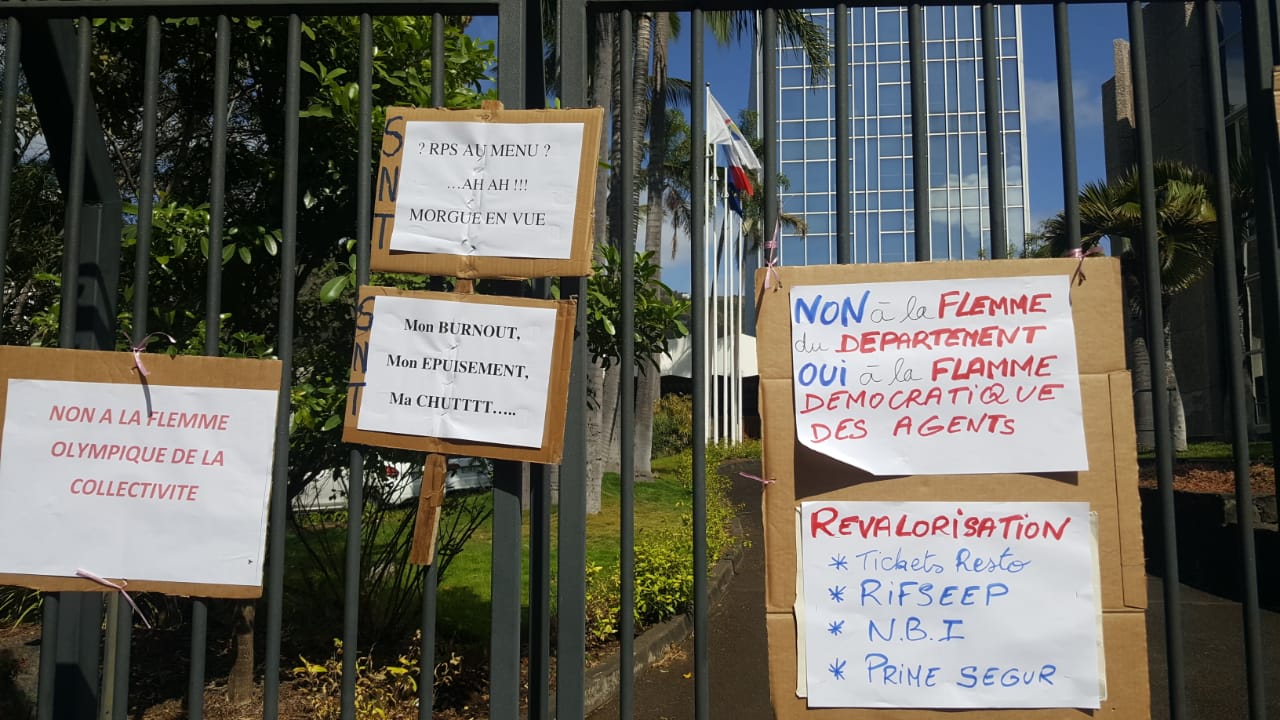 NON A LA FLEMME
OLYMPIQUE DE LA
COLLECTIVITE
SNT
? RPS AU MENU ?
...AH AH !!!
MORGUE EN VUE
SNT
Mon BURNOUT,
Mon EPUISEMENT,
Ma CHUTTTT.....
NON à la FLEMME
du DEPARTEMENT
OUI à la FLAMME
DEMOCRATIQUE
DES AGENTS
REVALORISATION
* Tickets Resto
* RIFSEEP
* N.B.I
* PRIME SEGUR